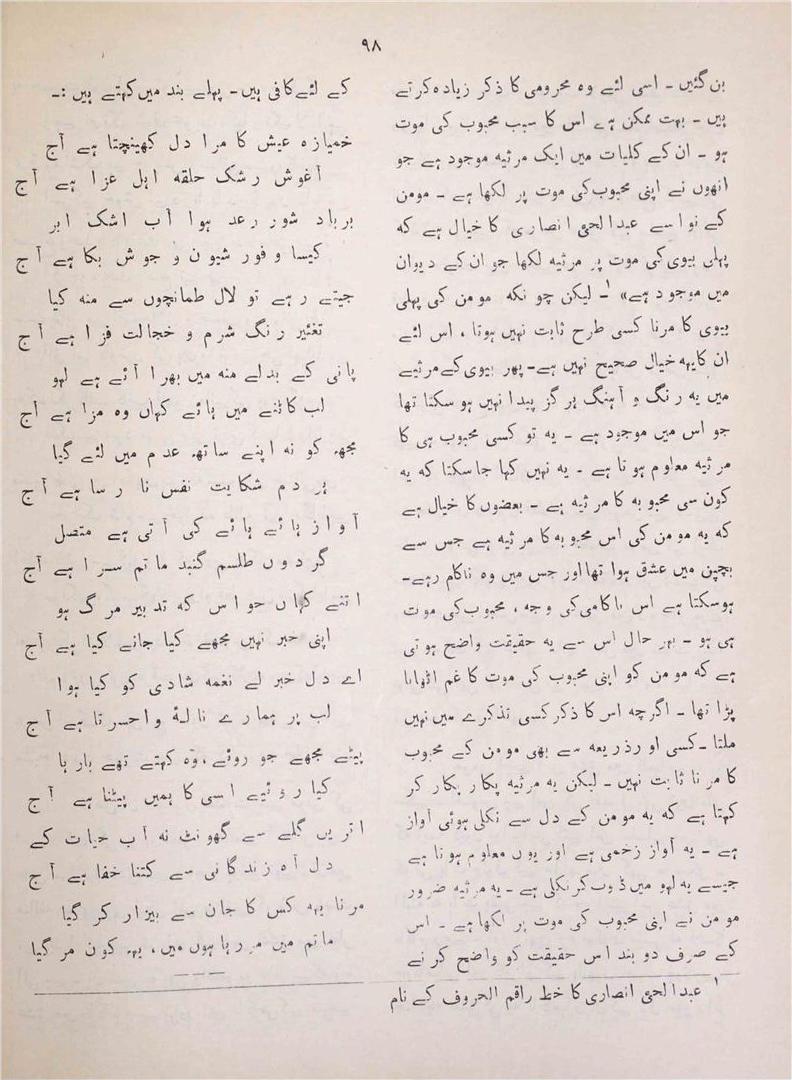 ۹۸
بن گئیں ۔ اسی لئے وہ محرومی کا ذکر زیادہ کرتے
ہیں ۔ بہت ممکن ہے اس کا سبب محبوب کی موت
ہو ۔ ان کے کلیات میں ایک مرثیہ موجود ہے جو
انھوں نے اپنی محبوب کی موت پر لکھا ہے ۔ مومن
کے نواسے عبدالحئ انصاری کا خیال ہے کہ
پہلی بیوی کی موت پر مرثیہ لکھا جو ان کے دیوان
میں موجود ہے» ۱ ۔ لیکن چونکہ مومن کی پہلی
بیوی کا مرنا کسی طرح ثابت نہیں ہوتا ، اس لئے
ان کا یہہ خیال صحیح نہیں ہے۔ پھر بیوی کے مرثیے
میں یہ رنگ و آہنگ ہرگز پیدا نہیں ہوسکتا تھا
جو اس میں موجود ہے ۔ یہ تو کسی محبوب ہی کا
مرثیہ معلوم ہوتا ہے ۔ یہ نہیں کہا جاسکتا کہ یہ
کون سی محبوبہ کا مرثیہ ہے ۔ بعضوں کا خیال ہے
کہ یہ مومن کی اس محبوبہ کا مرثیہ ہے جس سے
بچپن میں عشق ہوا تھا اور جس میں وہ ناکام رہے۔
ہوسکتا ہے اس ناکامی کی وجہ ، محبوب کی موت
ہی ہو ۔ بہر حال اس سے یہ حقیقت واضح ہوتی
ہے کہ مومن کو اپنی محبوب کی موت کا غم اٹھانا
پڑا تھا ۔ اگرچہ اس کا ذکر کسی تذکرے میں نہیں
ملتا ۔ کسی اور ذریعہ سے بھی مومن کے محبوب
کا مرنا ثابت نہیں ۔ لیکن یہ مرثیہ پکار پکار کر
کہتا ہے کہ یہ مومن کے دل سے نکلی ہوئی آواز
ہے ۔ یہ آواز زخمی ہے اور یوں معلوم ہوتا ہے
جیسے یہ لہو میں ڈوب کر نکلی ہے ۔ یہ مرثیہ ضرور
مومن نے اپنی محبوب کی موت پر لکھا ہے ۔ اس
کے صرف دو بند اس حقیقت کو واضح کرنے
کے لئے کافی ہیں ۔ پہلے بند میں کہتے ہیں :۔
خمیازہ عیش کا مرا دل کھینچتا ہے آج
آغوش رشک حلقہ اہل عزا ہے آج
برباد شور رعد ہوا آب اشک ابر
کیسا وفور شیون و جوش بکا ہے آج
جیتے رہے تو لال طمانچوں سے منہ کیا
تغئیر رنگ شرم و خجالت فزا ہے آج
پانی کے بدلے منہ میں بھر ا آئے ہے لہو
لب کاٹنے میں ہائے کہاں وہ مزا ہے آج
مجھہ کو نہ اپنے ساتھہ عدم میں لئے گیا
ہر دم شکایت نفس نا رسا ہے آج
آواز ہائے ہائے کی آتی ہے متصل
گردوں طلسم گنبد ماتم سرا ہے آج
اتنے کہاں حواس کہ تدبیر مرگ ہو
اپنی خبر نہیں مجھے کیا جانے کیا ہے آج
اے دل خبر لے نغمہ شادی کو کیا ہوا
لب پر ہمارے نالۂ واحسرتا ہے آج
پیٹے مجھے جو روئے، وہ کہتے تھے بارہا
کیا روئیے اسی کا ہمیں پیٹنا ہے آج
اتریں گلے سے گھونٹ نہ آب حیات کے
دل آہ زندگانی سے کتنا خفا ہے آج
مرنا یہہ کس کا جان سے بیزار کر گیا
ماتم میں مر رہا ہوں میں، یہہ کون مر گیا
۱ عبدالحئ انصاری کا خط راقم الحروف کے نام